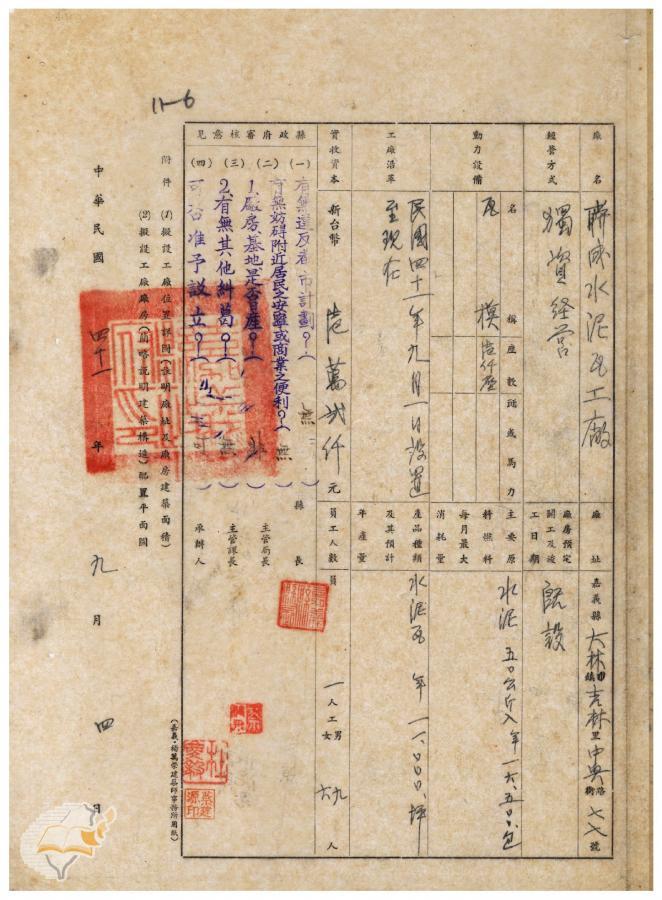 11-6
廠名 聯成水泥瓦工廠
廠址 嘉義縣大林鎮吉林里中興路街七八號
經營方式 獨資経营
廠房預定開工及竣工日期 既設
動力設備
名稱 座數 延或馬力
瓦模 壱仟座
主要原料燃料每月最大消耗量 水泥 五〇公斤入 年 一六、五〇〇包
工廠沿革 民國四十一年九月一日設置
至現在
產品種類及其預計年產量 水泥瓦 年 一一〇〇〇〇坪
實收資本 新台幣 壱萬弍仟元
員工人數 員一人 工 男九 女六 人
縣政府審核意見
(一) 有無違反都市計劃?( 無 )
(二) 有無妨碍附近居民之安寧或商業之便利?( 無 )
(三) 1.廠房基地是否自產?( )
2.有無其他糾葛?( 無 )
(四) 可否准予設立?( 可 )
縣長
主管局長
主管課長
承辦人
附件 (1)擬設工廠位置詳圖(註明廠址及廠房建築面積)
(2)擬設工廠廠房(簡略說明建築構造)配置平面圖
中華民國 四十一 年 九 月 四 日
(嘉義・楊萬榮建築師事務所用紙)